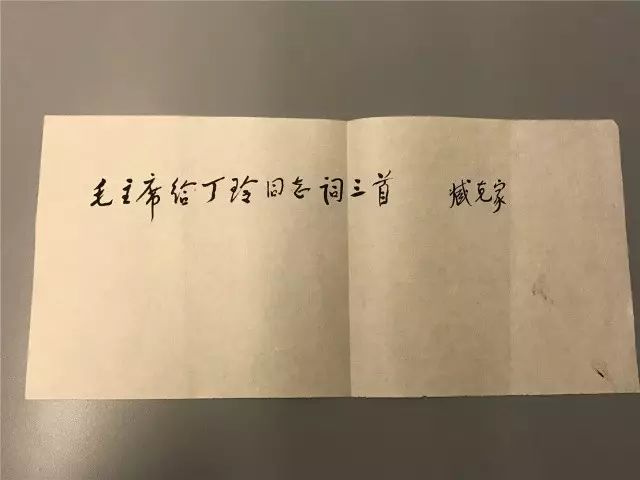 毛主席给丁玲同志词三首 臧克家